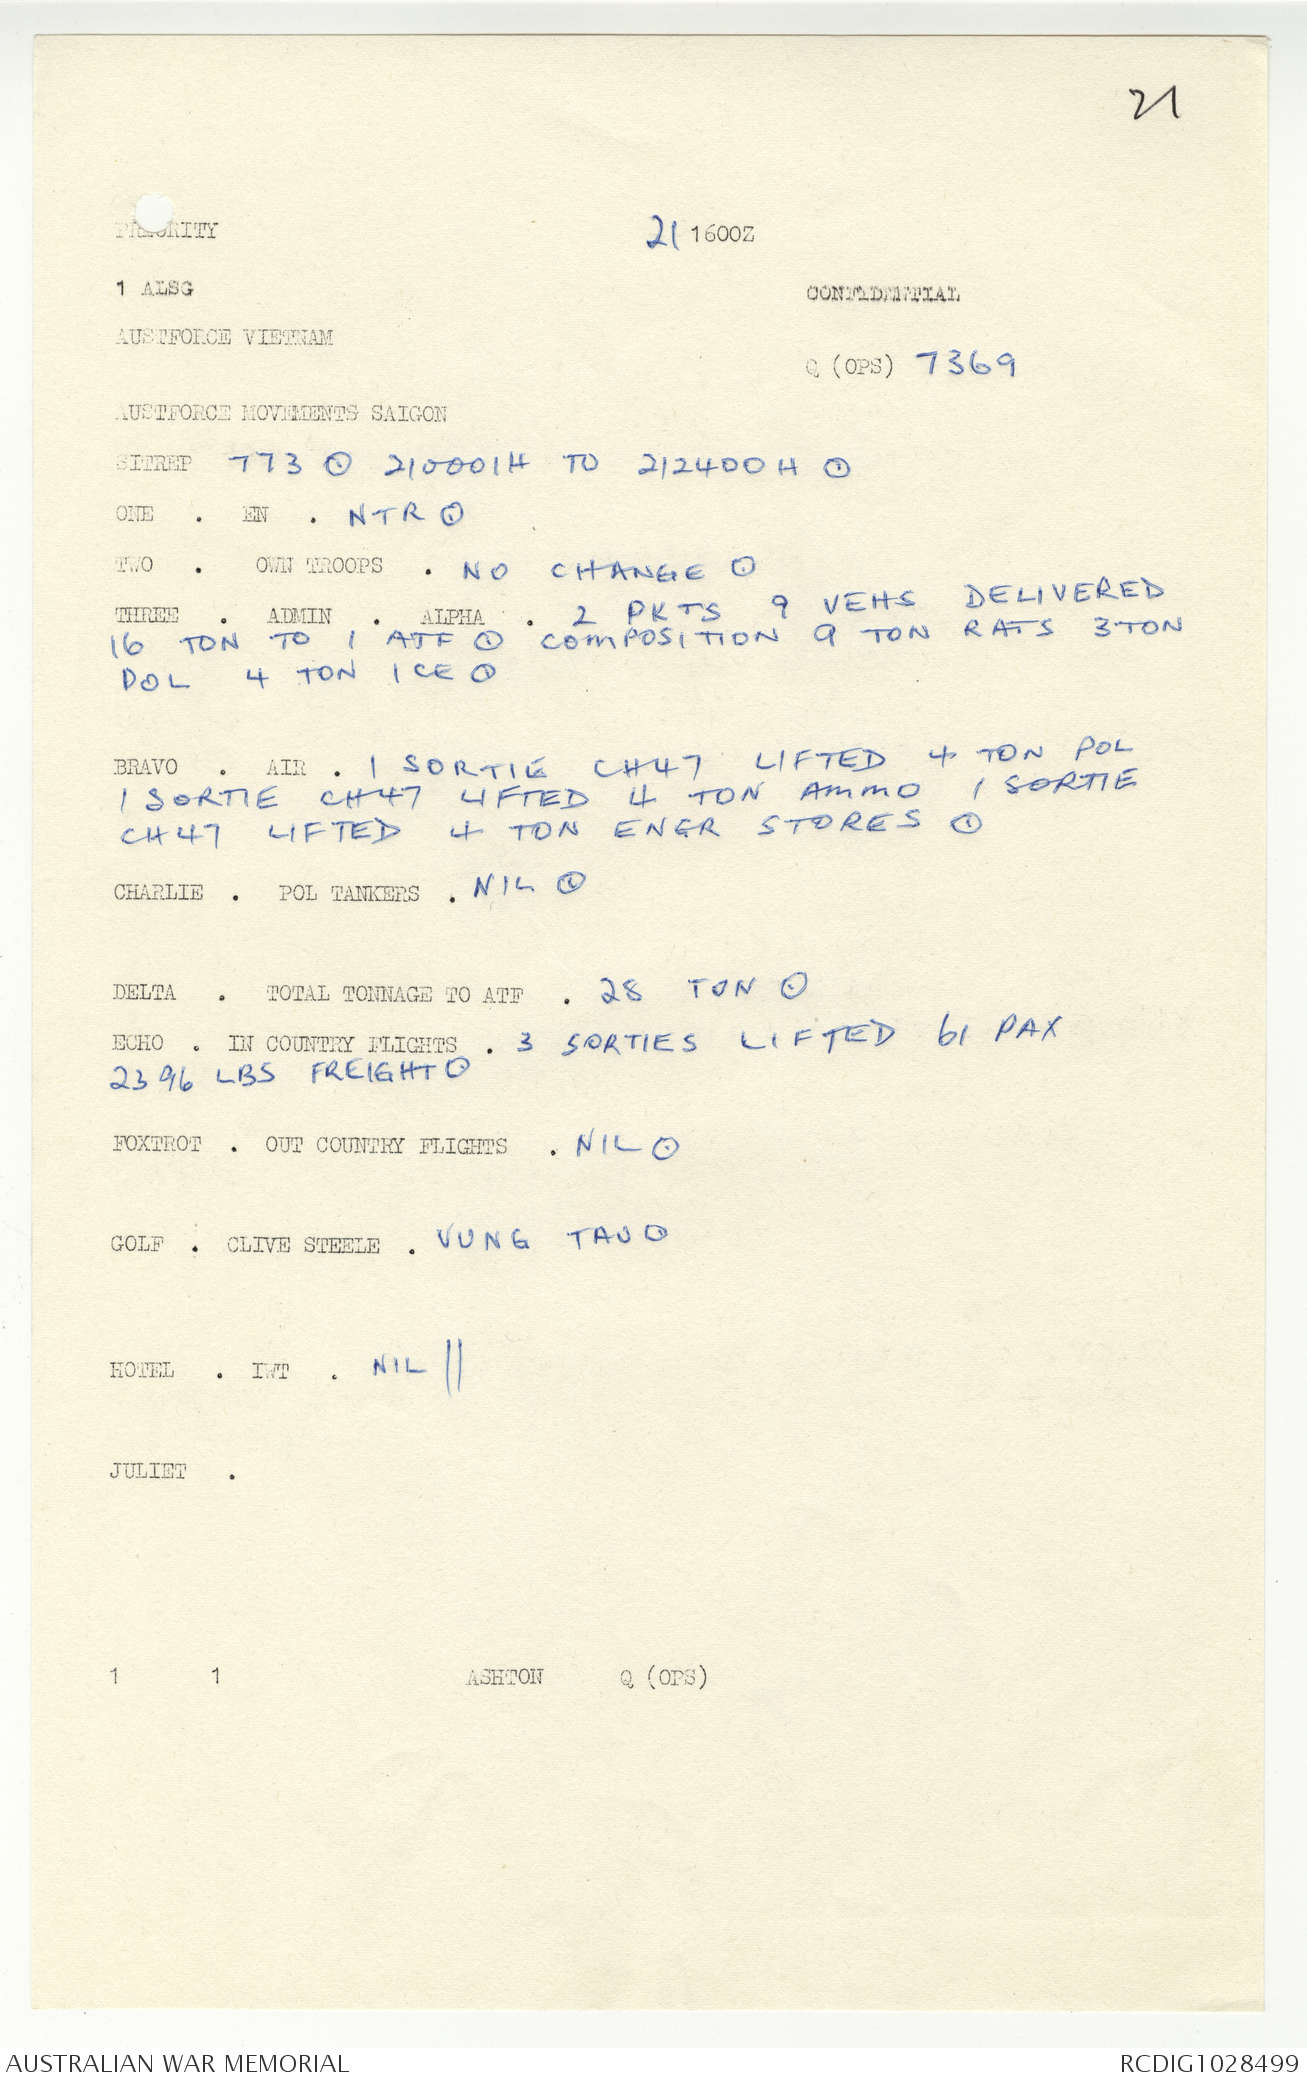 21
PRIORITY 21 1600Z
1 ALSG
CONFIDENTIAL
AUSTFORCE VIETNAM
Q (OPS) 7369
AUSTFORCE MOVEMENTS SAIGON
SITREP 773 ⊙ 210001H TO 212400H ⊙
ONE . EN . NTR ⊙
TWO . OWN TROOPS . NO CHANGE ⊙
THREE . ADMIN . ALPHA . 2 PKTS 9 VEHS DELIVERED
16 TON TO 1 ATF ⊙ COMPOSITION 9 TON RATS 3 TON
POL 4 TON ICE ⊙
BRAVO . AIR . 1 SORTIE CH47 LIFTED 4 TON POL
1 SORTIE CH47 LIFTED 4 TON AMMO 1 SORTIE
CH47 LIFTED 4 TON ENGR STORES ⊙
CHARLIE . POL TANKERS . NIL ⊙
DELTA . TOTAL TONNAGE TO ATF . 28 TON ⊙
ECHO . IN COUNTRY FLIGHTS . 3 SORTIES LIFTED 61 PAX
2396 LBS FREIGHT ⊙
FOXTROT . OUT COUNTRY FLIGHTS . NIL ⊙
GOLF . CLIVE STEELE . VUNG TAU ⊙
HOTEL . IWT . NIL ||
JULIET .
1 1 ASHTON Q (OPS)
AUSTRALIAN WAR MEMORIAL RCDIG1028499